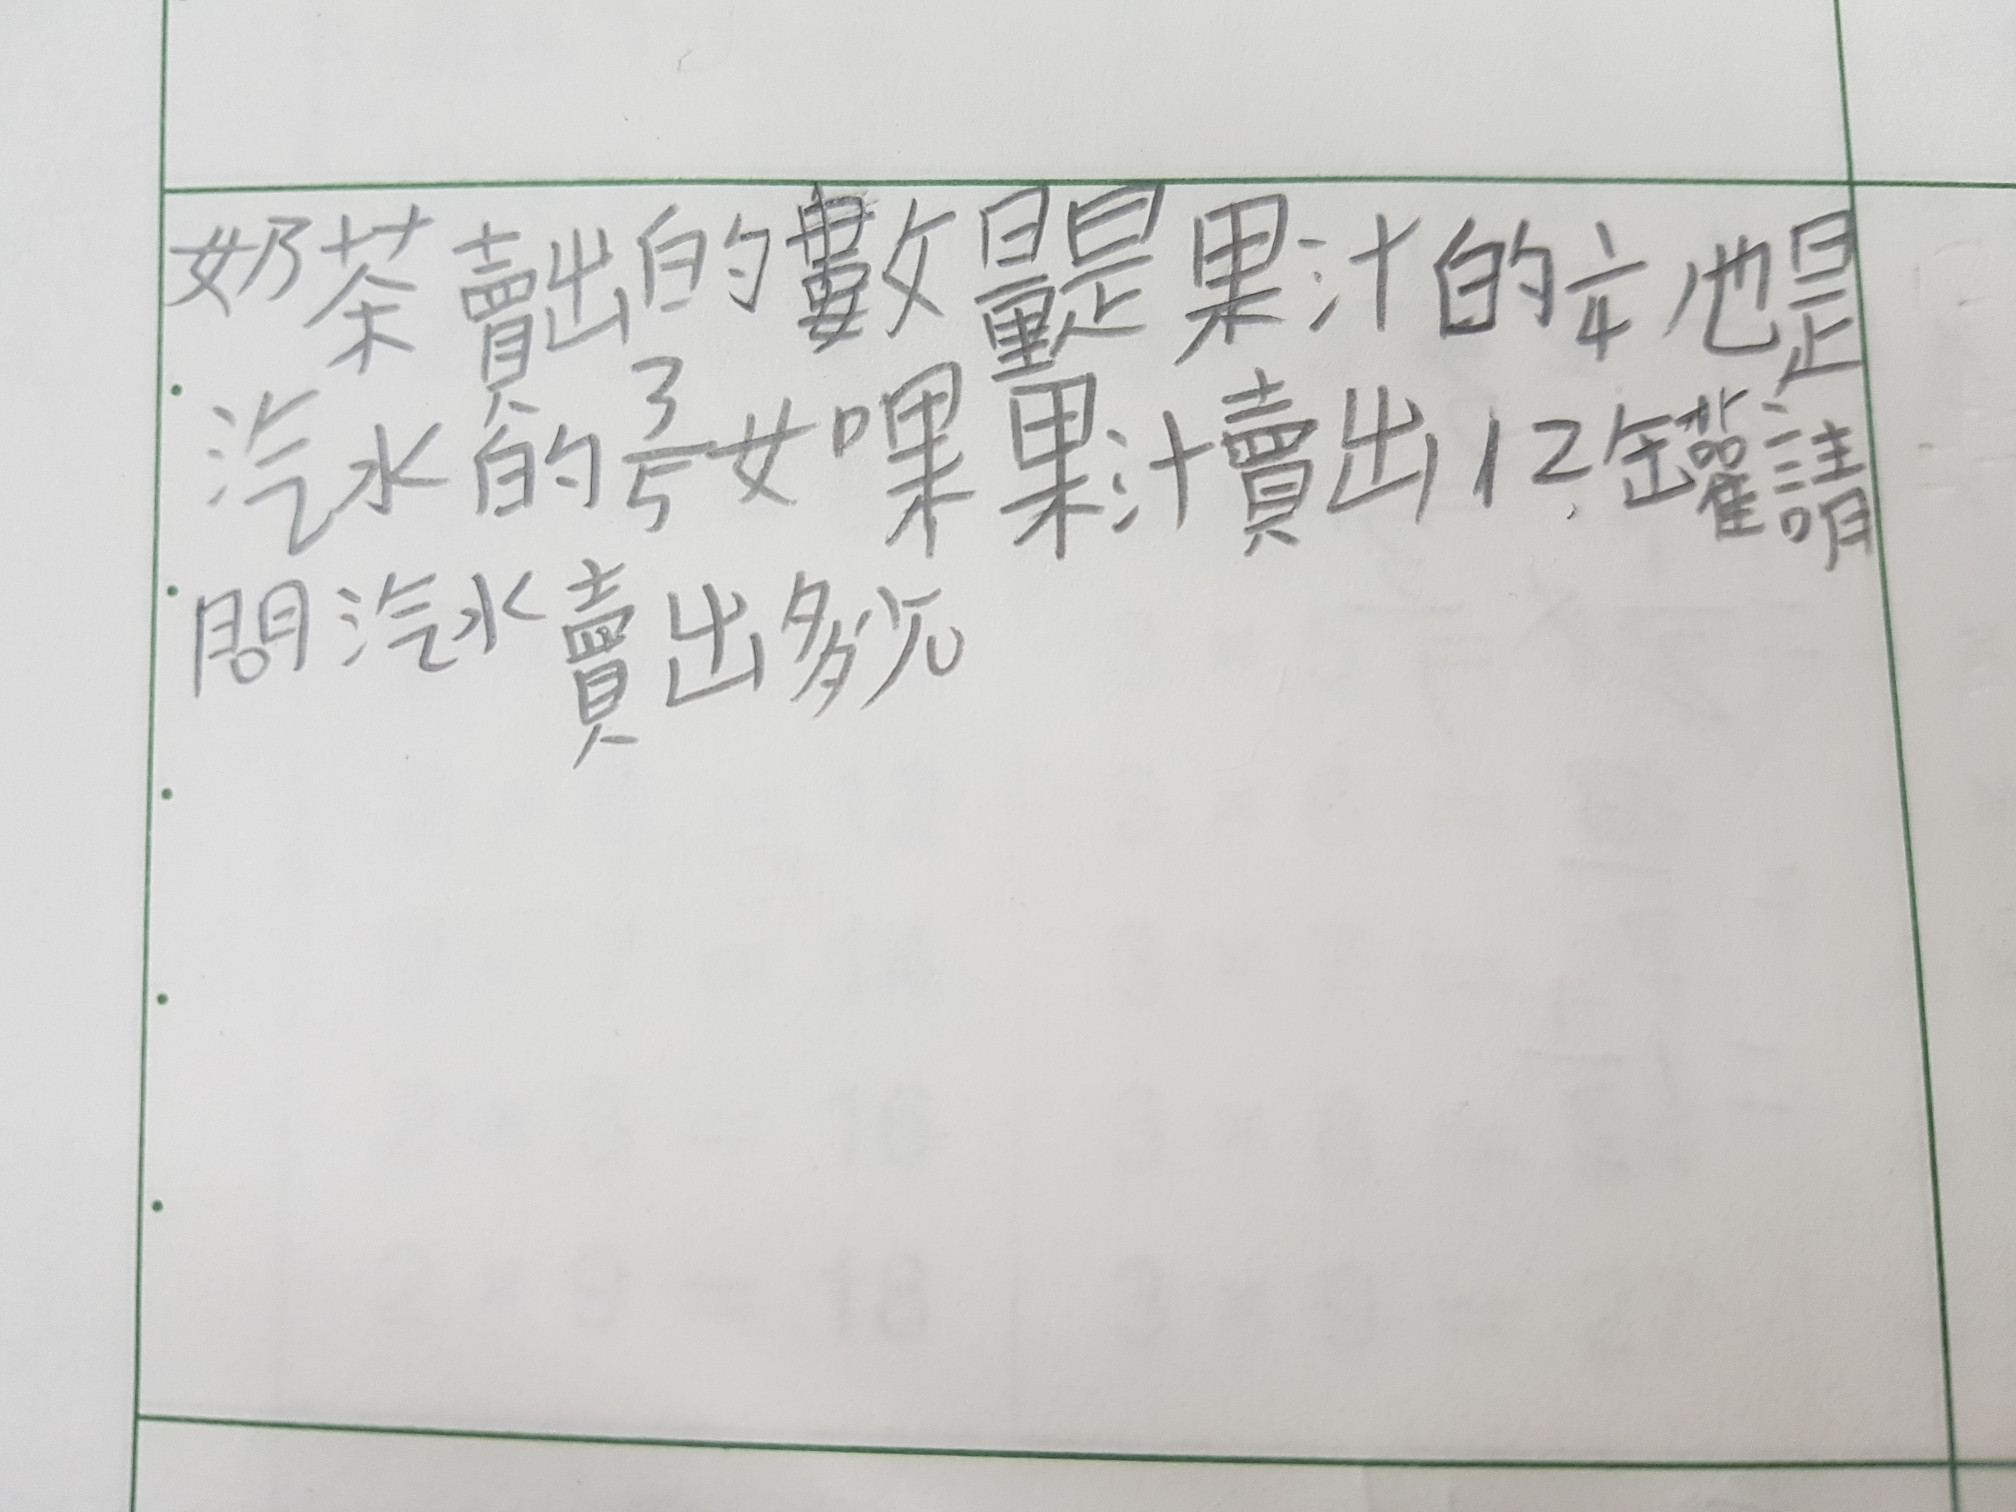 奶茶賣出的數量是果汁的1/4也是
汽水的3/5如果果汁賣出12罐請
問汽水賣出多少